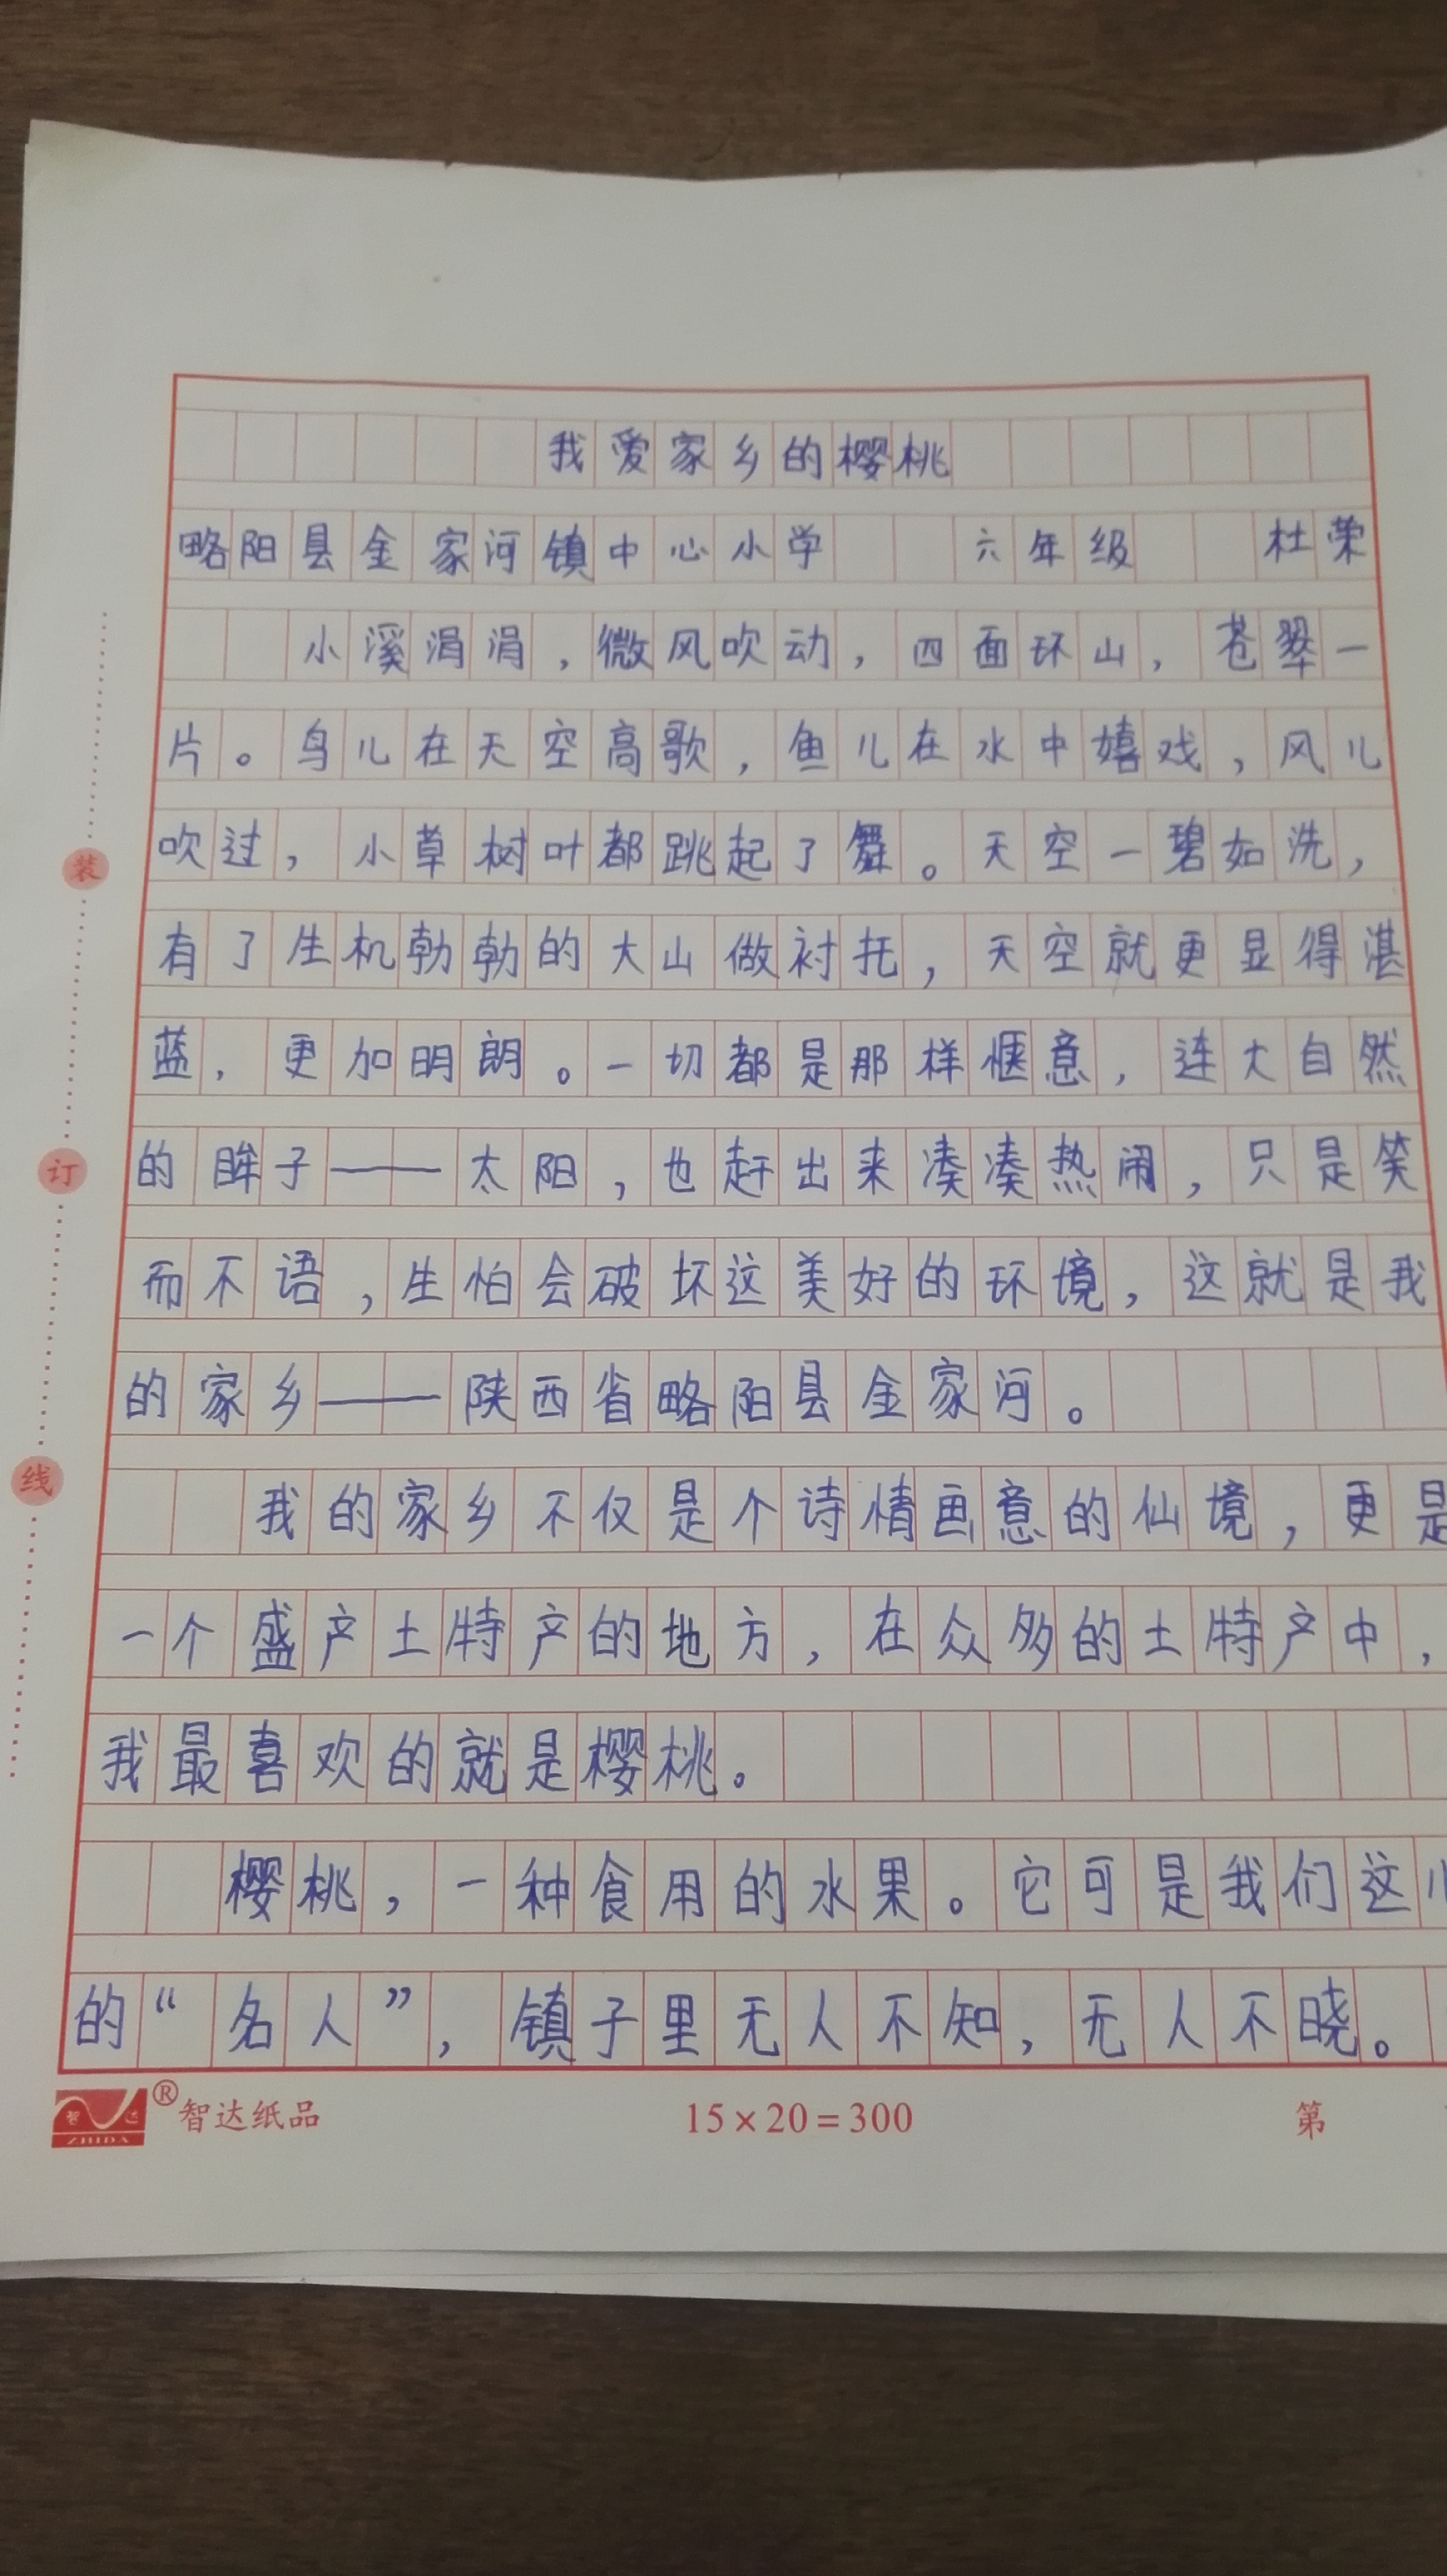 我爱家乡的樱桃
略阳县金家河镇中心小学 六年级 杜荣
小溪涓涓，微风吹动，四面环山，苍翠一
片。鸟儿在天空高歌，鱼儿在水中嬉戏，风儿
吹过，小草树叶都跳起了舞。天空一碧如洗，
有了生机勃勃的大山做衬托，天空就更显得湛
蓝，更加明朗。一切都是那样惬意，连大自然
的眸子——太阳，也赶出来凑凑热闹，只是笑
而不语，生怕会破坏这美好的环境，这就是我
的家乡——陕西省略阳县金家河。
我的家乡不仅是个诗情画意的仙境，更是
一个盛产土特产的地方，在众多的土特产中，
我最喜欢的就是樱桃。
樱桃，一种食用的水果。它可是我们这儿
的“名人”，镇子里无人不知，无人不晓。
装
订
线
智达
ZHIDA
®智达纸品
15×20=300
第